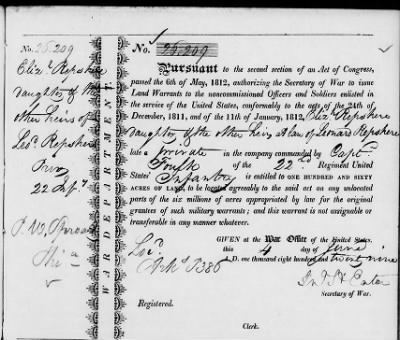 No. 25,209
Eliz. Repshere
daughter of the
other heirs of
Leo. Repshere
Priv
22 Inf.
Phi a
WAR DEPARTMENT.
No. 25,209
Pursuant to the second section of an Act of Congress,
passed the 6th of May, 1812, authorizing the Secretary of War to issue
Land Warrants to the noncommissioned Officers and Soldiers enlisted
in the service of the United States, conformably to the acts of the 24th
December, 1811, and of the 11th January, 1812, Eliz Repshere
daughter of the other heirs at law of Leonard Repshere
late a private in the company commanded by Capt.
of the 22nd Regiment United
States' Infantry is entitled to ONE HUNDRED AND SIXTY
ACRES OF LAND, to be located agreeably to the said act on any unlocated
parts of the six millions of acres appropriated by law for the original
grantees of such military warrants; and this warrant is not assignable or
transferable in any manner whatever.
GIVEN at the War Office of the United States,
this 4 day of June
A.D. one thousand eight hundred and twenty nine
Jno. H. Eaton
Secretary of War.
Registered.
Clerk.